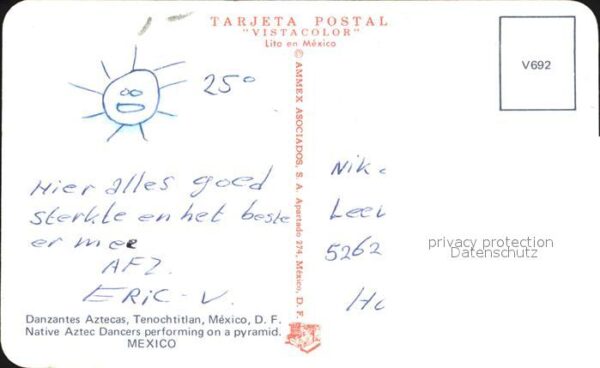 TARJETA POSTAL
"VISTACOLOR"
Lito en México
V692
25°
Hier alles goed
sterkte en het beste
er mee
AFZ.
ERIC-V.
© AMMEX ASOCIADOS, S. A. Apartado 274, México, D. F.
Nik
Lee
5262
privacy protection
Datenschutz
Danzantes Aztecas, Tenochtitlan, México, D. F.
Native Aztec Dancers performing on a pyramid.
MEXICO